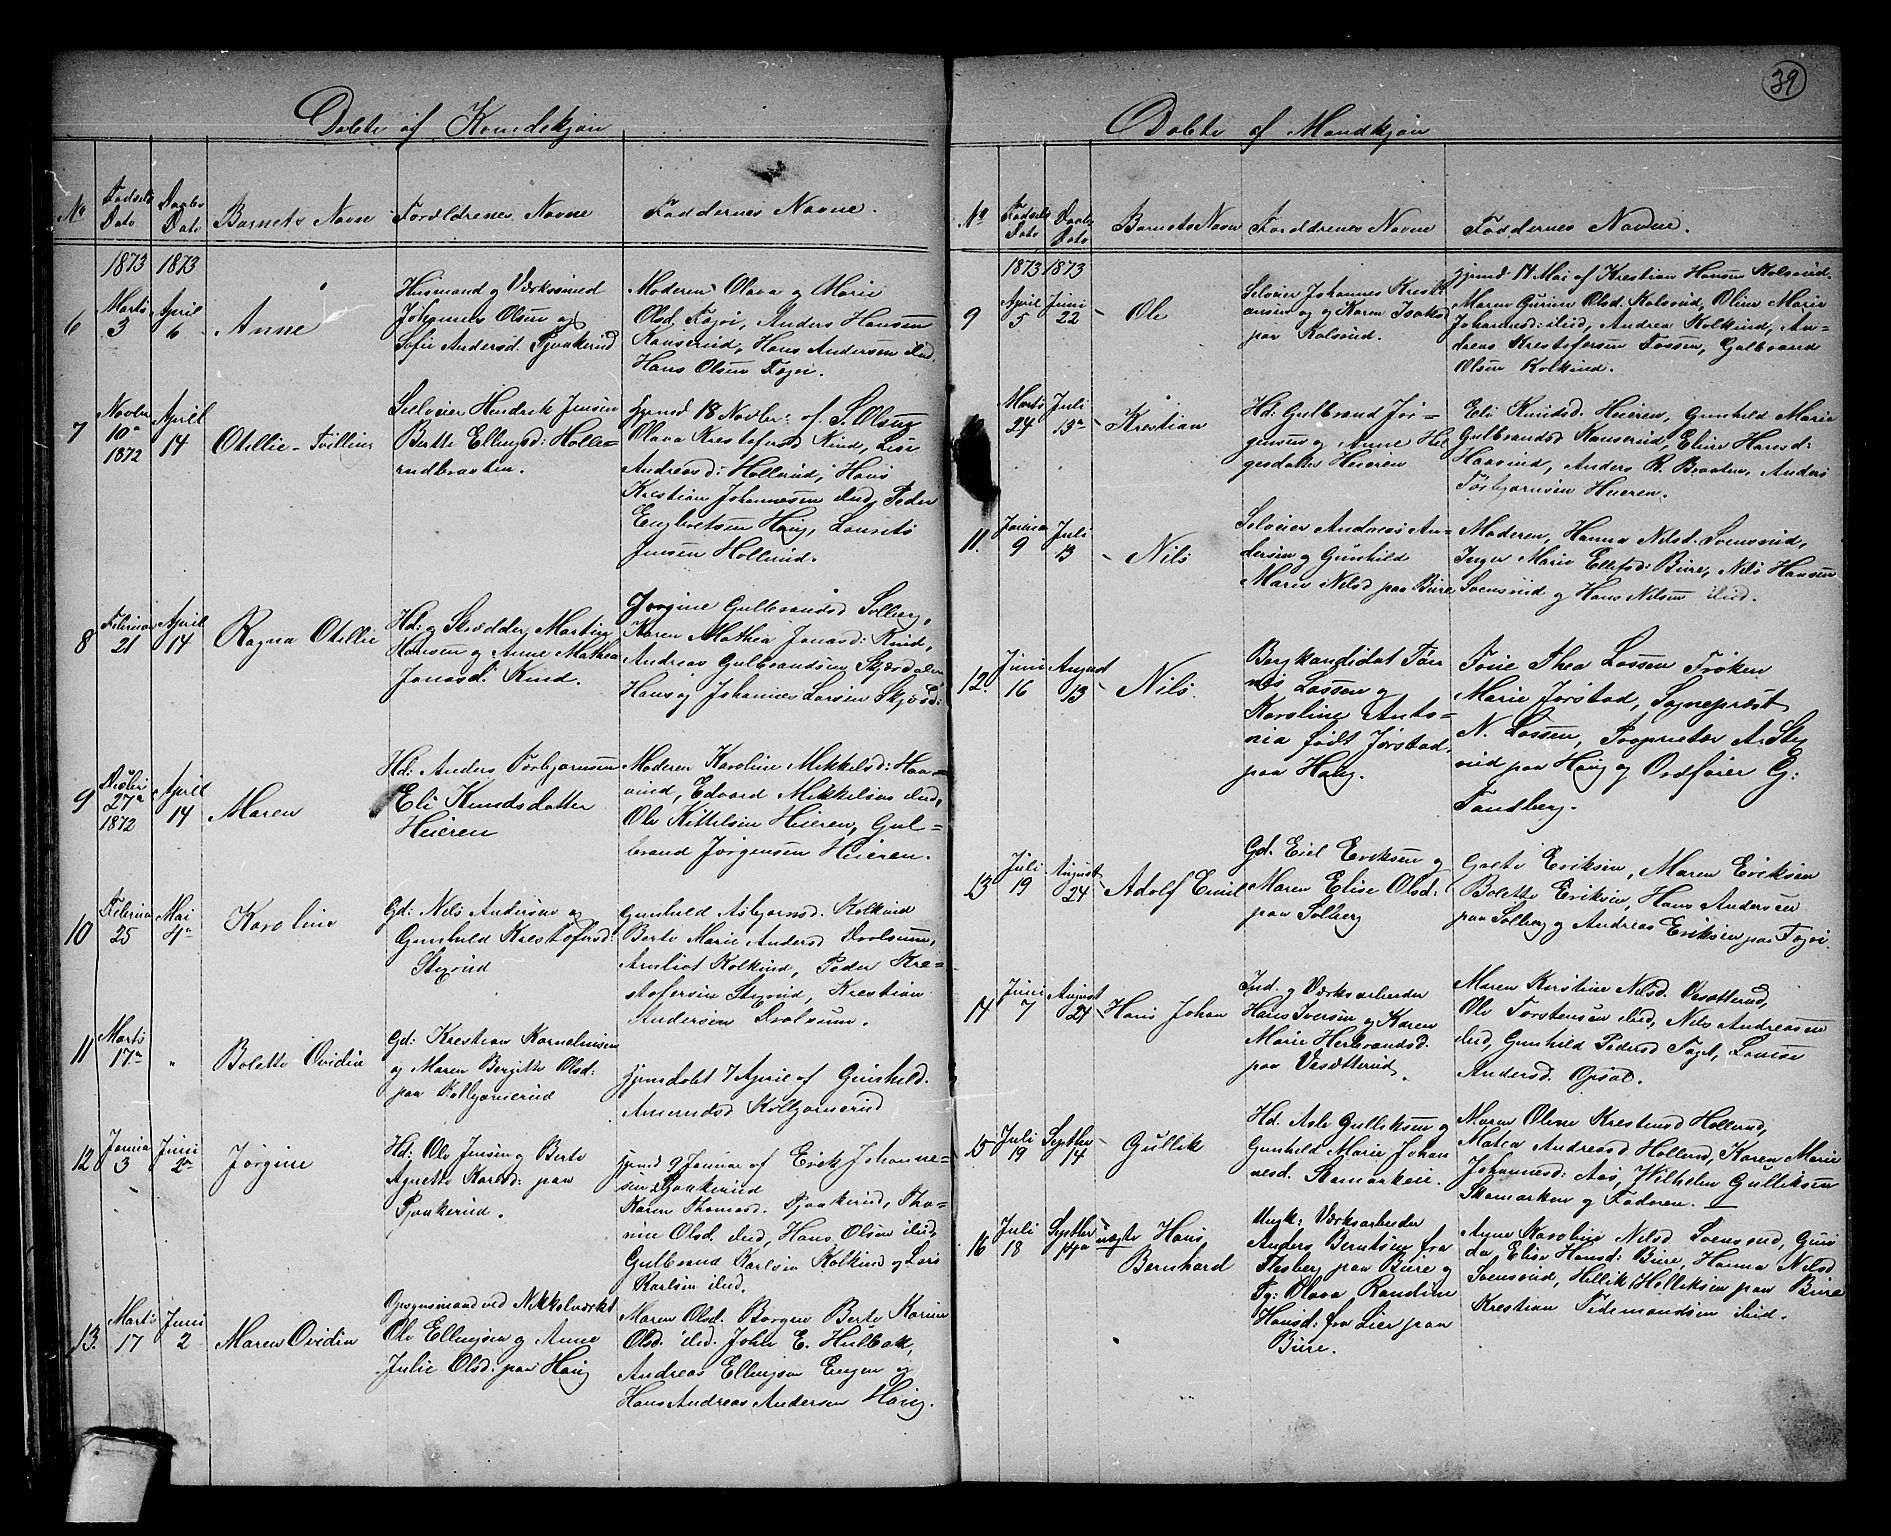 39
Døbte af Kvindekjøn
No Fødsels Dato Daabs Dato Barnets Navn Forældrenes Navne Faddernes Navne.
1873 1873
6 Marts 3 April 6 Anne
Husmand og Værksmed
Johannes Olsen og
Sofie Andersd. Tjaakerud
Moderen Olava og Marie
Olsd. Fogoi, Anders Hansen
Kanserud, Hans Andersen ibid,
Hans Olsen Fogoi.
7 Novbr 10de 1872 April 14 Otillie - Tvilling
Selveier Hendrik Jensen
Berthe Ellingsd: Holle-
rudbraaten.
hjemd 18 Novbr: af S. Olsen
Olava Krestofersd Rud, Lise
Andreasd: Hollerud, Hans
Krestian Johannesen ibid, Peder
Engbretsen Haug, Laurets
Jensen Hollerud.
8 Februar 21 April 14 Ragna Otillie
Hd: og Skrædder Martin
Hansen og Anne Mathea
Jonasd: Rud.
Jørgine Gulbrandsd Solberg,
Karen Mathea Jonasd: Rud,
Andreas Gulbrandsen Skjærdalen
Hans og Johannes Larsen
9 Decbr 27de 1872 April 14 Maren
Hd: Anders Torbjørnsen
Eli Knudsdatter
Heieren
Moderen Karoline Mikkelsd: Haa-
vind, Edvard Mikkelsen ibid,
Ole Kittelsen Heieren, Gul-
brand Jørgensen Heieren.
10 Februar 25 Mai 4de Karoline
Gd: Nils Andersen og
Gunhild Krestofersd:
Styxrud
Gunhild Asbjørnsd. Kolkind
Berte Marie Andersd
Kolkind, Peder Kre-
stofersen Styxrud, Krestian
Andersen
11 Marts 17de " Bolette Ovidia
Gd: Krestian Kornelinsen
og Maren Bergitte Olsd:
paa Kolbjørnerud
hjemdøbt 7 April af Gunhild.
Amundsd Kolbjørnerud
12 Januar 3 Juni 2de Jørgine
Hd: Ole Jensen og Berte
Agnethe Karlsd: paa
Tjaakerud.
hjemd 9 Januar af Erik Johanne-
sen Tjaakerud
Karen Thomasd. Tjaakerud, Tho-
nie Olsd. ibid, Hans Olsen ibid,
Gulbrand Karlsen Kolkind og Lars
Karlsen ibid.
13. Marts 17 Juni 2 Maren Ovidia
Opsynsmand ved Nikkelværket
Ole Ellingsen og Anne
Julie Olsd: paa Haug
Maren Olsd. Borgen Berte Karine
Olsd. ibid. John E. Hulbak,
Andreas Ellingsen Engen og
Hans Andreas Andersen Haug.
Døbte af Mandkjøn
No Fødsels Dato Daabs Dato Barnets Navn Forældrenes Navne Faddernes Navne.
1873 1873
9 April 5 Juni 22 - Ole
Selveier Johannes Kresti-
ansen og Karen Isaksd
paa Kolsrud.
hjemd 14 Mai af Krestian Hansen Kolsrud.
Maren Gurine Olsd. Kolsrud, Oline Marie
Johannesd: ibid, Andrea Kolkind, An-
dreas Krestofersen Fossen, Gulbrand
Olsen Kolkind.
Marts 24 Juli 13de - Krestian
Hd: Gulbrand Jør-
gensen og Anne Hel
gesdatter Heieren
Eli Knudsd: Heieren, Gunhild Marie
Gulbrandsd Kanserud, Eline Hansd:
Haavind, Anders R. Braaten, Anders
Torbjørnsen Heieren.
11. Januar 9 Juli 13 - Nils
Selveier Andreas An-
dersen og Gunhild
Marie Nilsd paa Bure
Moderen, Hanna Nilsd. Svensrud,
Inger Marie Ellefsd: Bure, Nils Hansen
Svensrud og Hans Nilsen ibid.
12. Juni 16 August 13 - Nils.
Bergkandidat Tøn
nes Lossen og
Karoline Anto-
nia født Jørstad,
paa Haug.
Frue Thea Lossen Frøken
Marie Jørstad, Sognepræst
N. Lossen, Proprietær A. Sty
rud paa Haug og Ordfører G:
Tandberg.
13 Juli 19 August 24 - Adolf Emil
Gd. Eiel Eriksen og
Maren Elise Olsd:
paa Solberg
Grete Eriksen, Maren Eriksen
Bolette Eriksen, Hans Andersen
paa Solberg og Andreas Eriksen paa Fogoi.
14 Juni 7 August 24 - Hans Johan
Ind. og Værksarbeider
Hans Iversen og Karen
Marie Herbrandsd.
paa Vesætterud.
Maren Kirstine Nilsd. Vesætterud,
Ole Torstensen ibid, Nils Andreasen
ibid, Gunhild Pedersd Foget, Lovise
Andersd. Opsal.
15 Juli 19 Septber 14 - Gullik
Hd. Asle Gulliksen og
Gunhild Marie Johan
nesd. Skamarken.
Maren Olene Krestensd Hollerud,
Maren Andreasd Hollerud, Karen Marie
Johannesd: Aas, Wilhelm Gulliksen
Skamarken og Faderen.
16 Juli 18 Septber 14de uægte Hans
Bernhard
Ungk: Værksarbeider
Anders Berntsen fra
Flesberg paa Bure og
Pg: Olava Randine
Hansd: fra Lier paa
Bure.
Anne Karoline Nilsd Svensrud, Guri
da Elise Hansd: Bure, Hanna Nilsd
Svensrud, Hellik Helliksen paa Bure
Krestian Tidemandsen ibid.